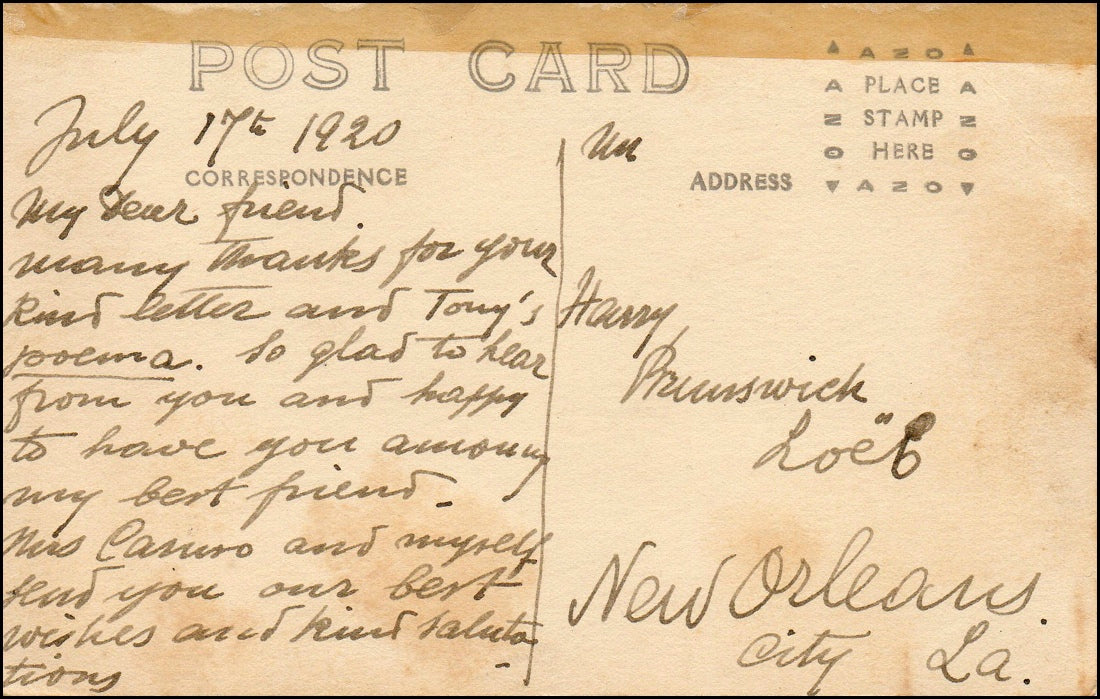 POST CARD
AZO
PLACE
STAMP
HERE
AZO
July 17th 1920
CORRESPONDENCE
My Dear friend.
many thanks for your
kind letter and Tony's
poema. So glad to hear
from you and happy
to have you amoung
my best friend -
Mrs Caruso and myself
send you our best
wishes and kind saluta-
tions
ADDRESS
Harry
Brunswick
Loëb
New Orleans.
City La.